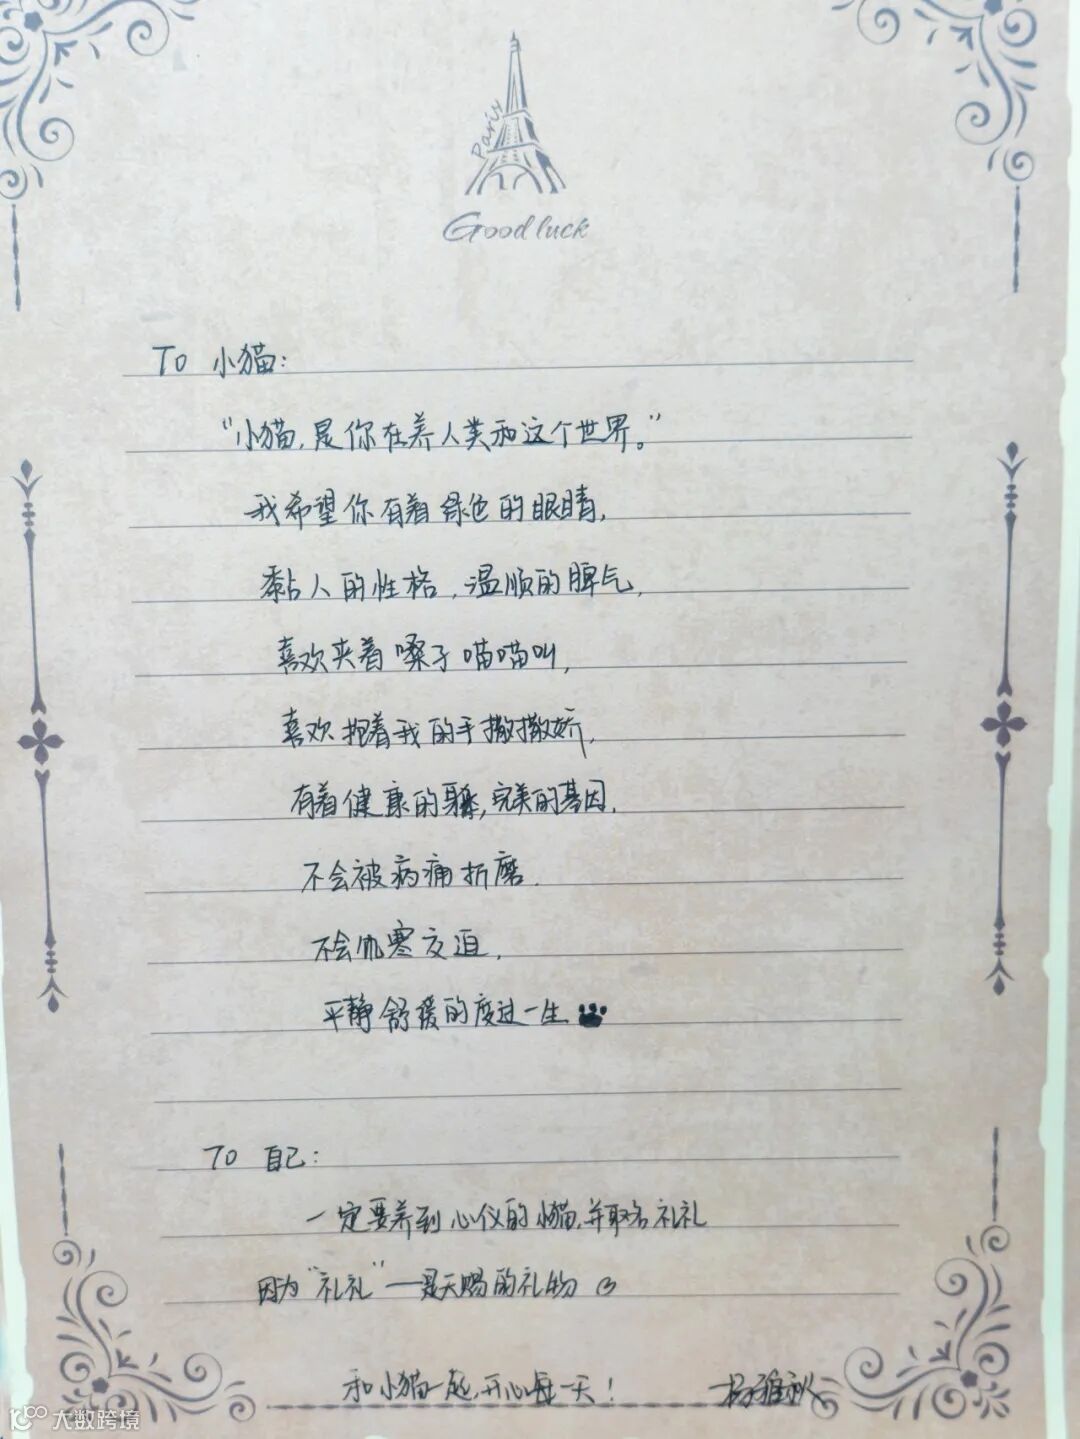 Paris
Good luck
TO 小猫：
“小猫，是你在养人类和这个世界。”
我希望你有着绿色的眼睛，
黏人的性格，温顺的脾气，
喜欢夹着嗓子喵喵叫，
喜欢抱着我的手撒撒娇，
有着健康的身躯，完美的基因，
不会被病痛折磨，
不会饥寒交迫，
平静舒缓的度过一生
TO 自己：
一定要养到心仪的小猫，并取名礼礼
因为“礼礼”——是天赐的礼物
和小猫一起，开心每一天！ 杨雅秋
大数跨境